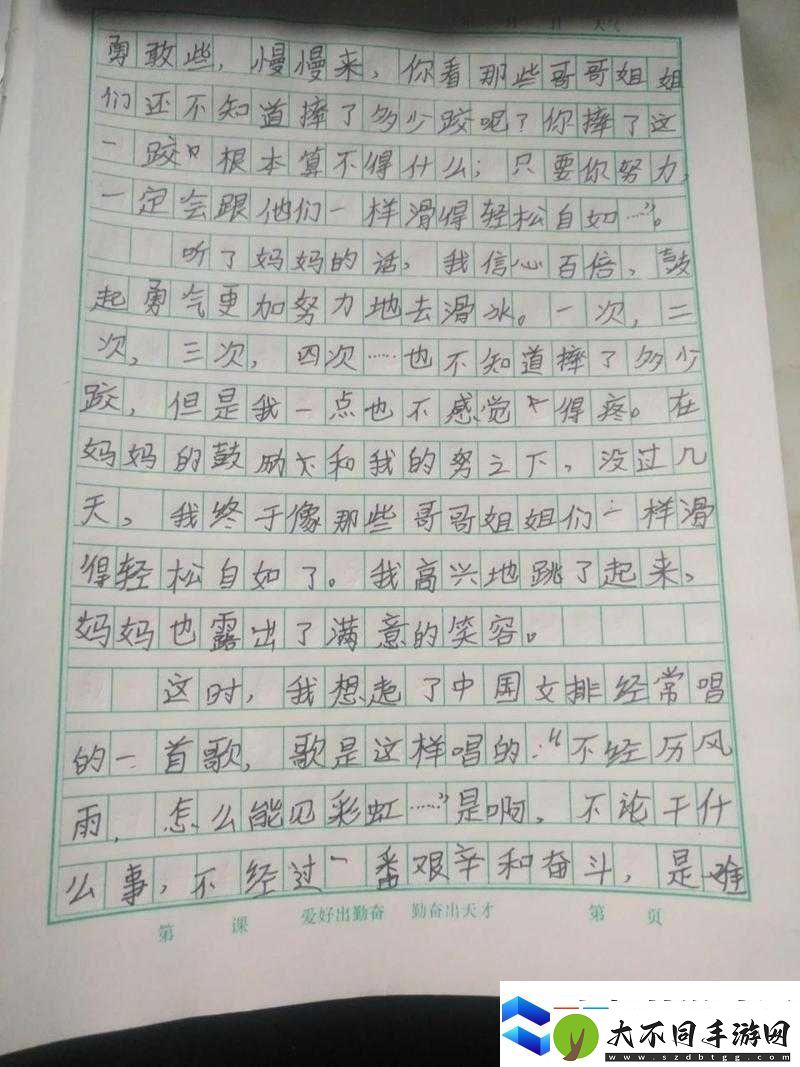 勇敢些，慢慢来，你看那些哥哥姐姐
们还不知道摔了多少跤呢？你摔了这
一跤，根本算不得什么；只要你努力，
一定会跟他们一样滑得轻松自如……”。
听了妈妈的话，我信心百倍，鼓
起勇气更加努力地去滑冰。一次，二
次，三次，四次……也不知道摔了多少
跤，但是我一点也不感觉得疼。在
妈妈的鼓励下和我的努之下，没过几
天，我终于像那些哥哥姐姐们一样滑
得轻松自如了。我高兴地跳了起来，
妈妈也露出了满意的笑容。
这时，我想起了中国女排经常唱
的一首歌，歌是这样唱的：“不经历风
雨，怎么能见彩虹……”是啊，不论干什
么事，不经过一番艰辛和奋斗，是难
第 课 爱好出勤奋 勤奋出天才 第 页
大不同手游网
www.szdbtgg.com